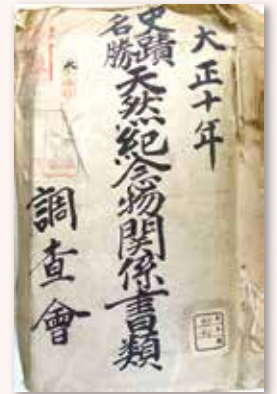 大正十年
史蹟
名勝
天然紀念物関係書類
調査會